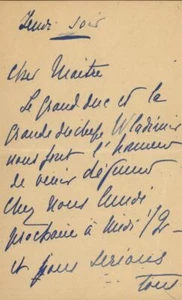 Jeudi soir
Cher Maitre
Le grand duc et la
grande duchesse Wladimir
nous font l'honneur
de venir déjeuner
chez nous lundi
prochain à midi 1/2 -
et nous serions
tous